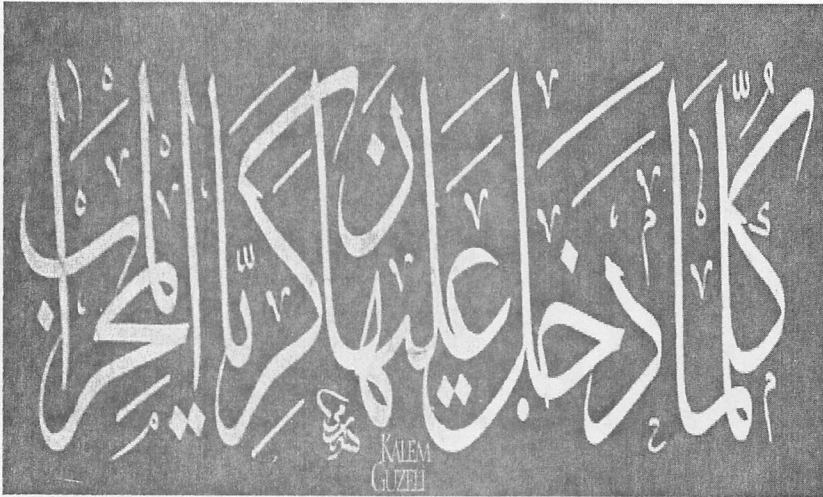 كُلَّمَا دَخَلَ عَلَيْهَا زَكَرِيَّا الْمِحْرَابَ
KALEM
GÜZELİ